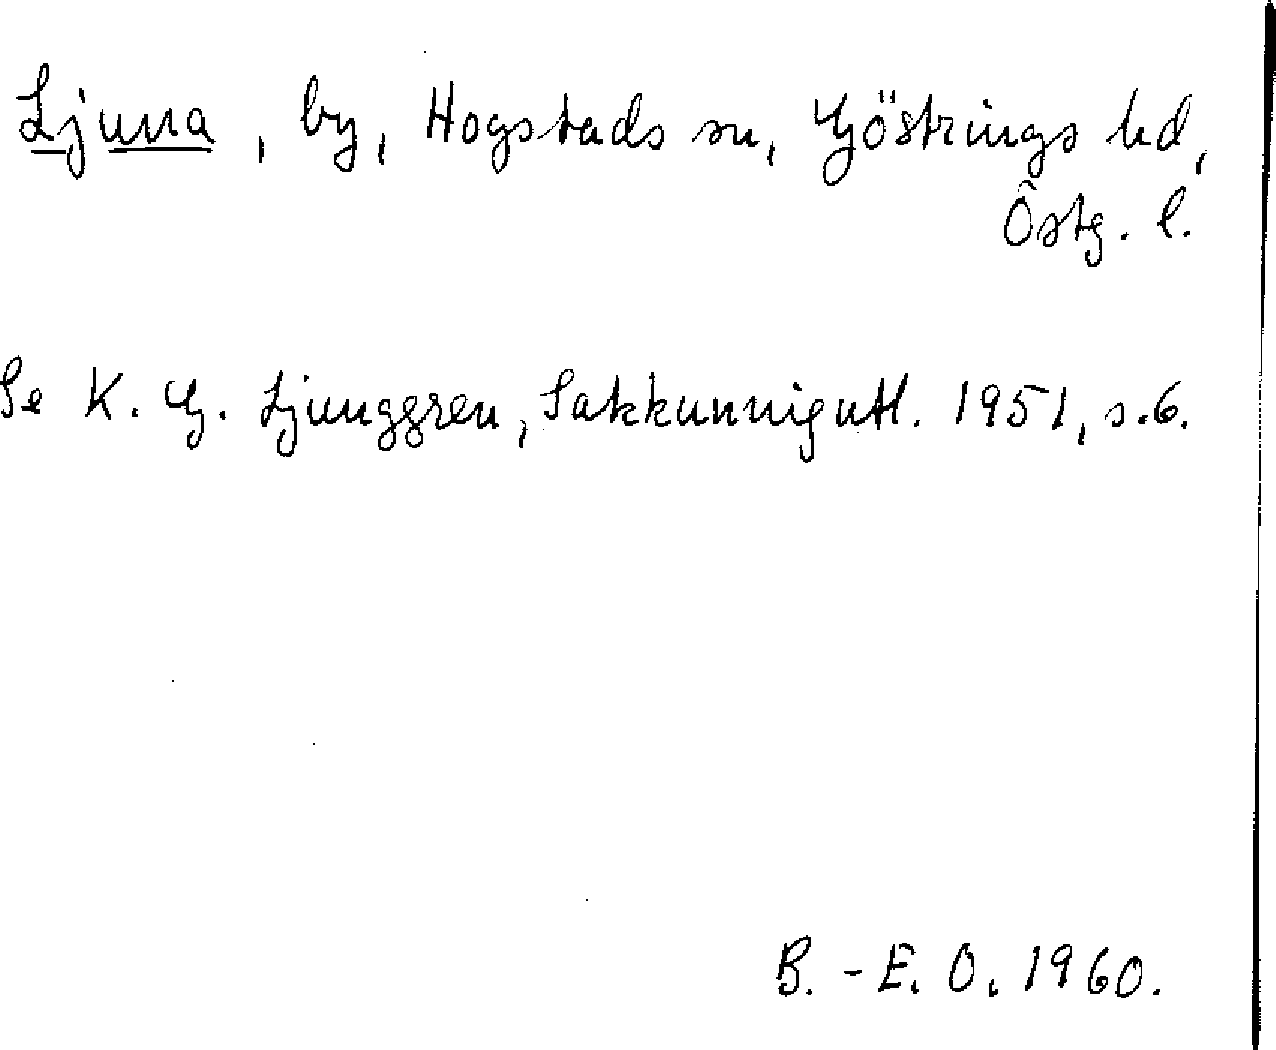 Ljuna, by, Hogstads sn, Göstrings hd,
Östg. l.
Se K. G. Ljunggren, Sakkunnigutl. 1951, s. 6.
B.-E. O. 1960.